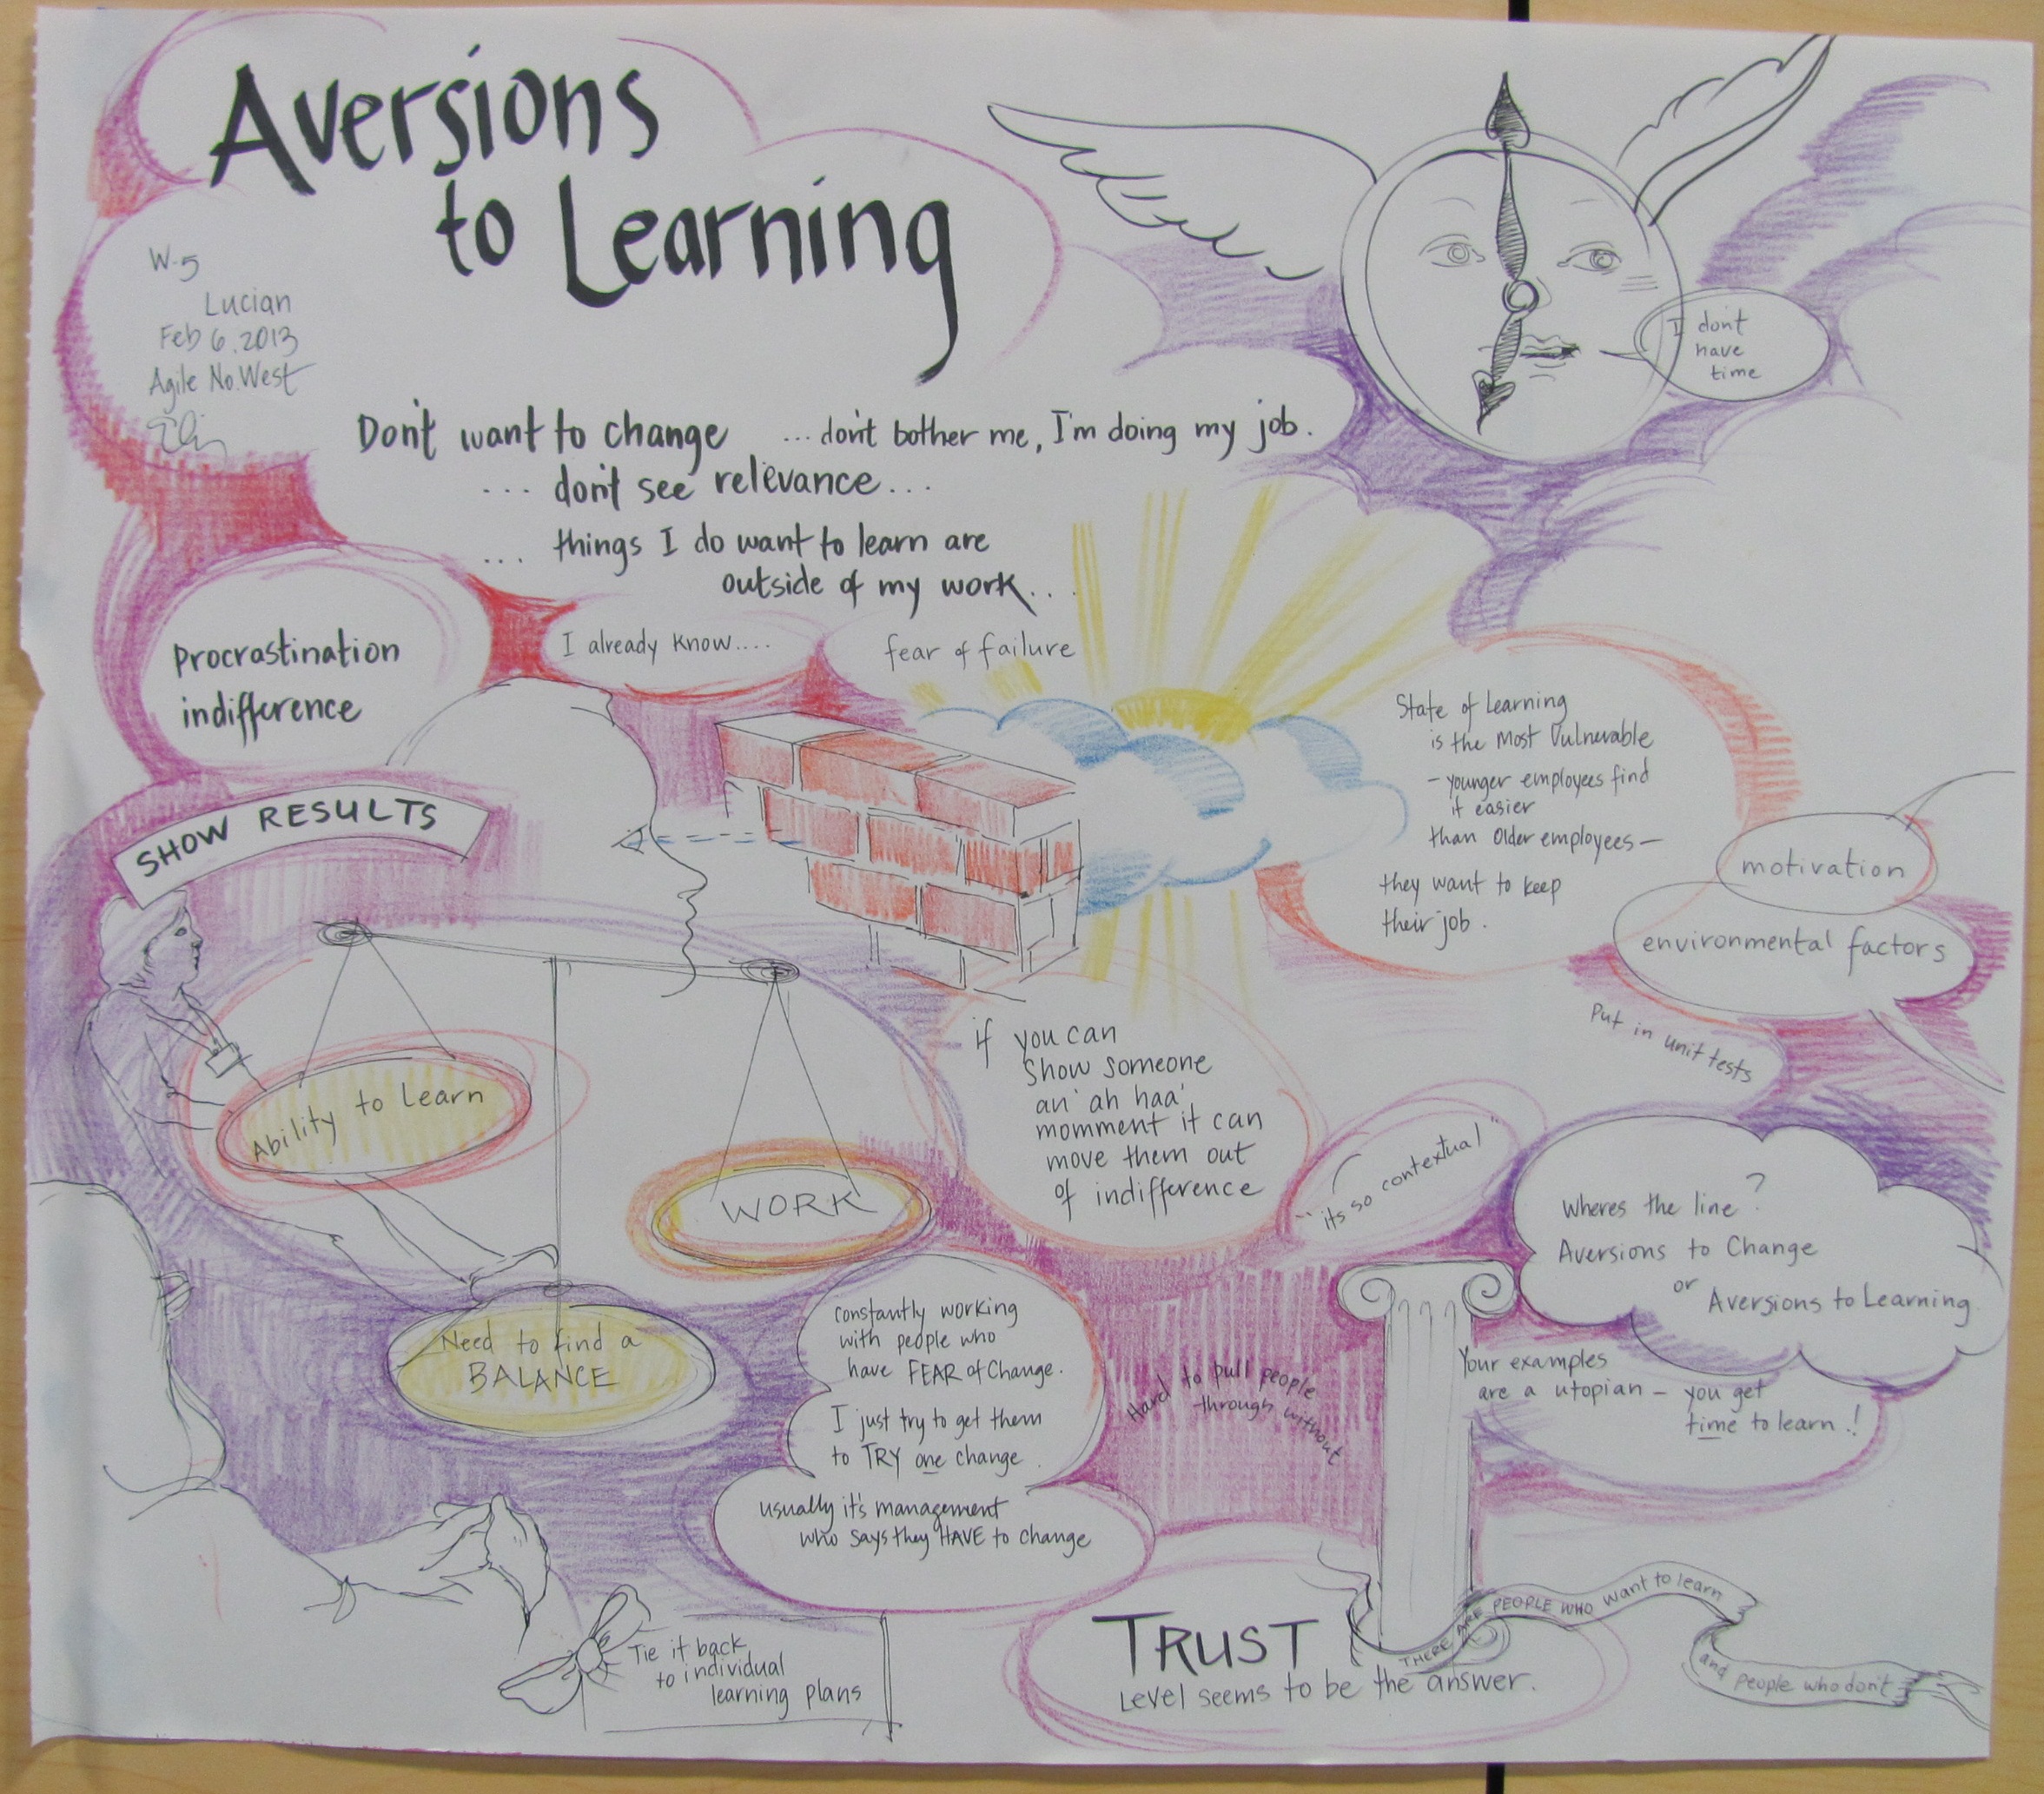 Aversions
to Learning
W-5
Lucian
Feb 6, 2013
Agile No.West
I don't
have
time
Don't want to change ... don't bother me, I'm doing my job.
... don't see relevance...
... things I do want to learn are
outside of my work...
Procrastination
indifference
I already know....
fear of failure
State of Learning
is the Most Vulnerable
- younger employees find
it easier
than Older employees -
they want to keep
their job.
motivation
environmental factors
Put in unit tests
SHOW RESULTS
Ability to Learn
WORK
Need to find a
BALANCE
if you can
Show someone
an 'ah haa'
momment it can
move them out
of indifference
"its so contextual"
Wheres the line?
Aversions to Change
or Aversions to Learning
Your examples
are a utopian - you get
time to learn!
constantly working
with people who
have FEAR of Change.
I just try to get them
to TRY one change.
usually it's management
who says they HAVE to change
Hard to pull people
through without
Tie it back
to individual
learning plans
TRUST
Level seems to be the answer.
THERE ARE PEOPLE WHO want to learn
and people who don't